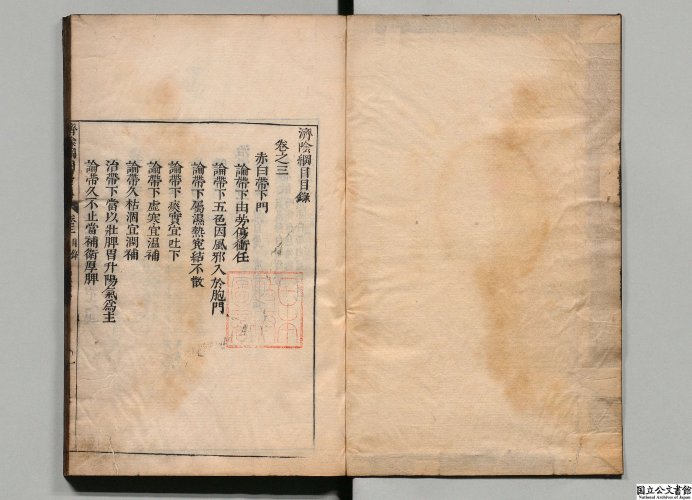 濟陰綱目目錄
卷之三
赤白帶下門
論帶下由勞傷衝任
論帶下五色因風邪入於胞門
論帶下屬濕熱寃結不散
論帶下痰實宜吐下
論帶下虛寒宜溫補
論帶久枯涸宜潤補
治帶下當以壯脾胃升陽氣爲主
論帶久不止當補衛厚脾
卷三目錄
国立公文書館
National Archives of Japan